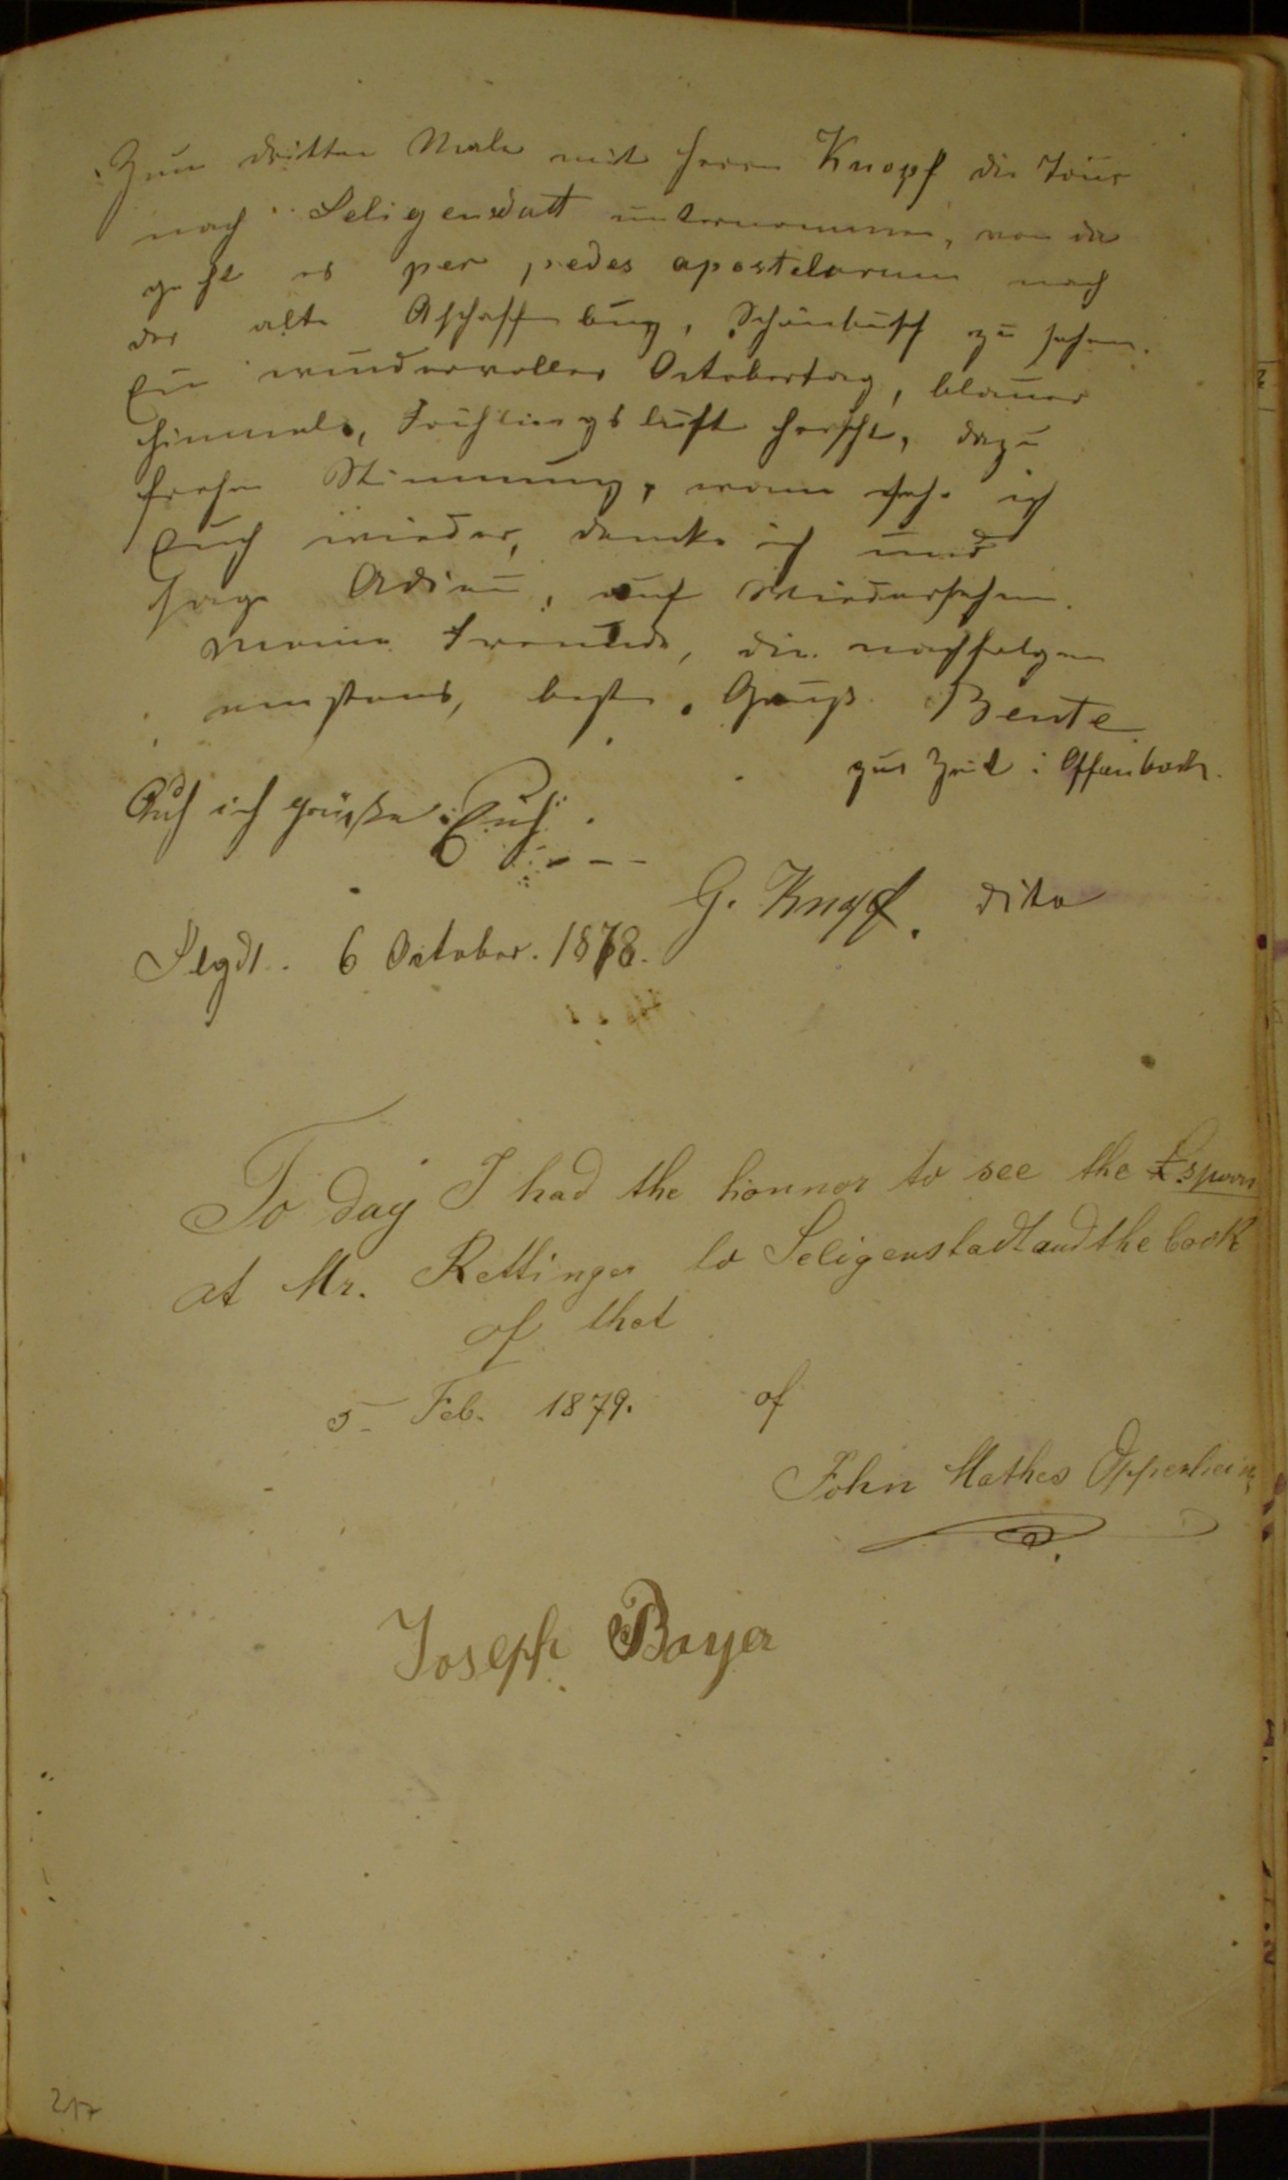 Zum dritten Male mit Herrn Knopf die Tour
nach Seligenstatt unternommen, von da
geht es per pedes apostolorum nach
der alte Aschaffenburg, Schönbusch zu sehen.
Ein wundervoller Octobertag, blauer
Himmel, Frühlingsluft herscht, dazu
frohe Stimmung, wann sehe ich
Euch wieder, dencke ich und
sage Adieu, auf Wiedersehen.
Meine Freunde, die nachfolgen
beste Gruß Bente
zur Zeit i Offenbach.
Auch ich grüße Euch
G. Knopf. dito
Slgdt. 6 October. 1878.
To day I had the honnor to see the Spoon
at Mr. Rettinger to Seligenstadt and the book
of that
5. Feb. 1879. of
John Mathes Oppenheim
Joseph Bayer
217